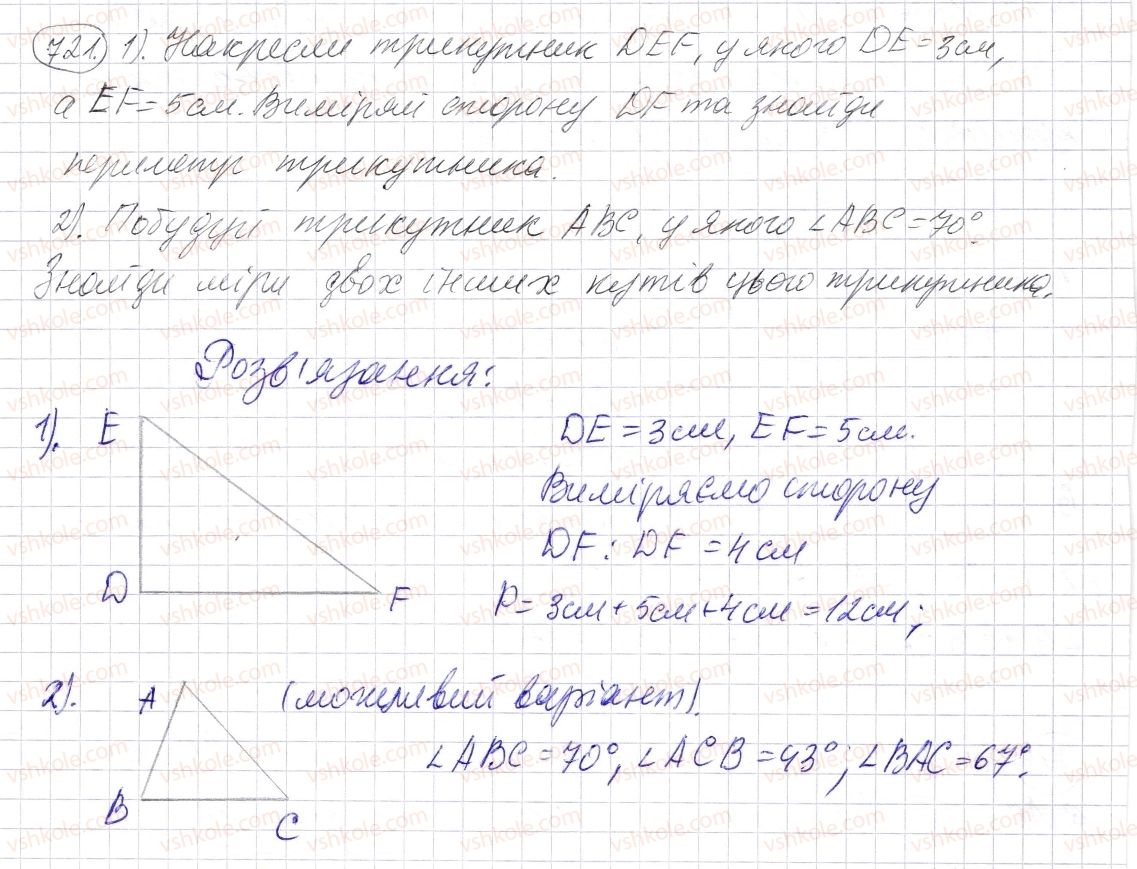 721. 1). Накресли трикутник DEF, у якого DE = 3см,
а EF = 5см. Виміряй сторону DF та знайди
периметр трикутника.
2). Побудуй трикутник ABC, у якого ∠ABC = 70°.
Знайди міри двох інших кутів цього трикутника.
Розв'язання:
1). E D F
DE = 3см, EF = 5см.
Виміряємо сторону
DF: DF = 4см
P = 3см + 5см + 4см = 12см;
2). A B C
(можливий варіант).
∠ABC = 70°, ∠ACB = 43°; ∠BAC = 67°.
vshkole.com